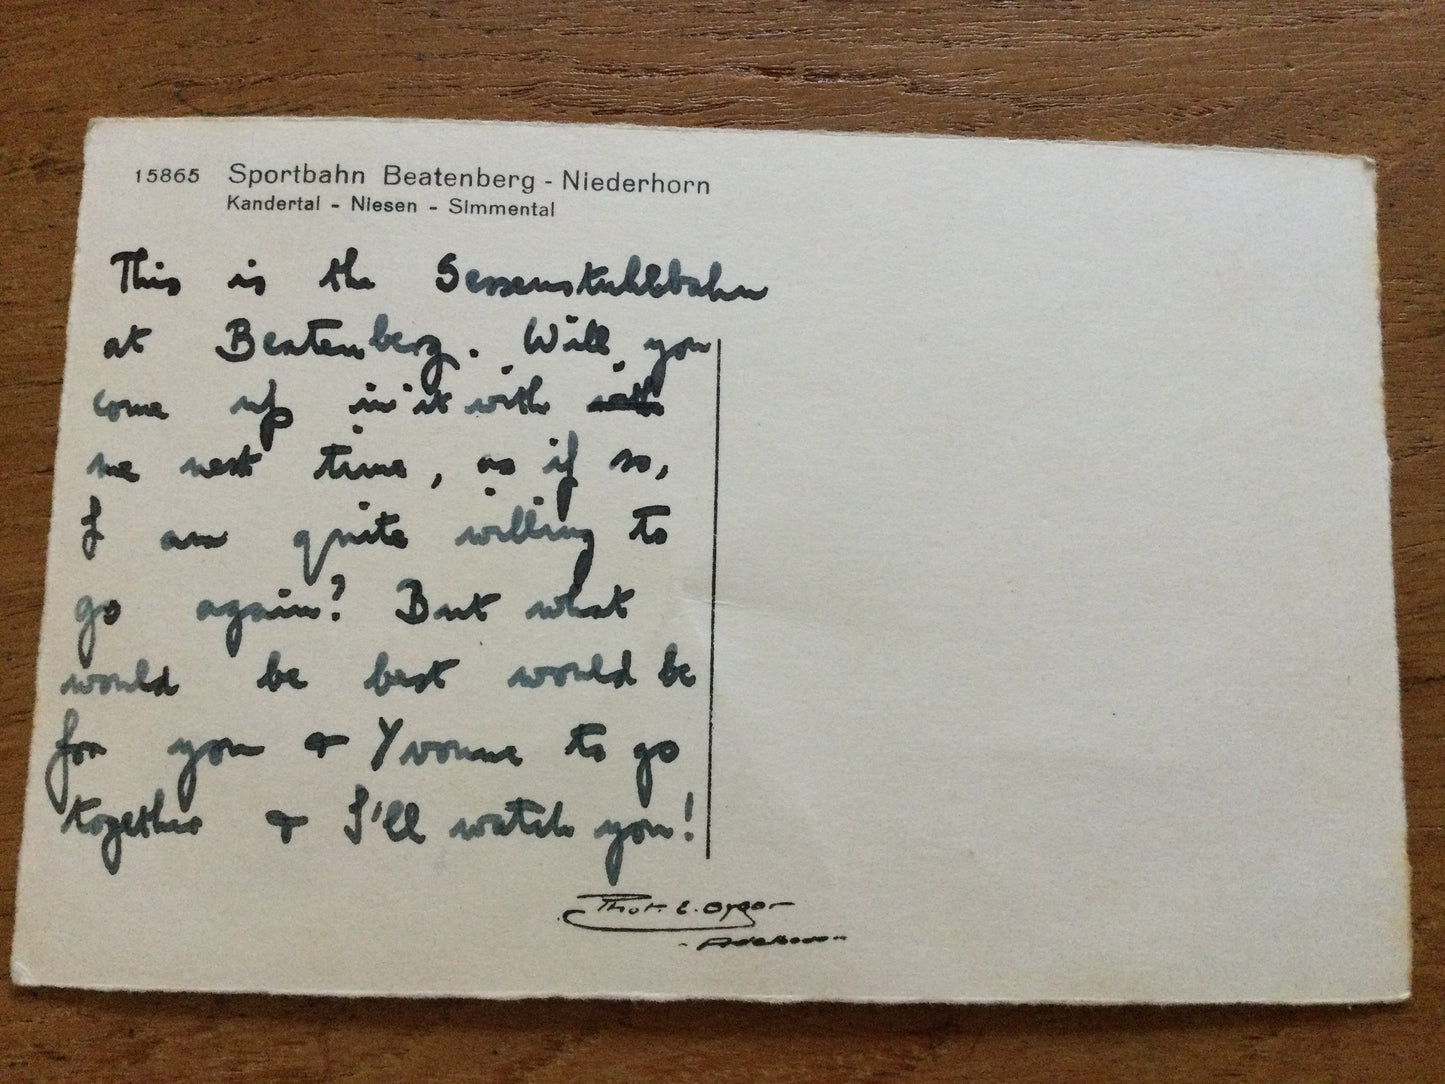 15865 Sportbahn Beatenberg - Niederhorn
Kandertal - Niesen - Simmental
This is the Sessenstuhlbahn
at Beatenberg. Will you
come up in it with
me next time, as if so,
I am quite willing to
go again? But what
would be best would be
for you & Yvonne to go
together & I'll watch you!
Phot. E. Gyger
- Adelboden -